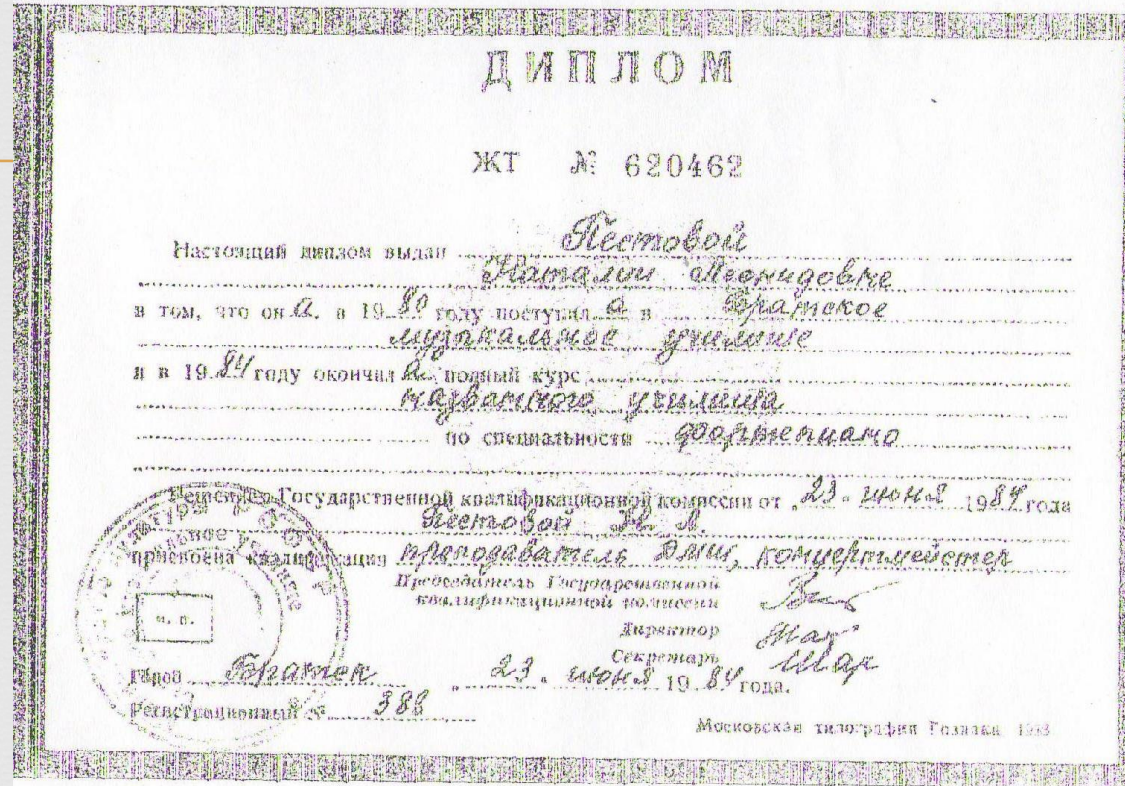 ДИПЛОМ
ЖТ № 620462
Настоящий диплом выдан Пестовой
Наталии Леонидовне
в том, что он а. в 19 80 году поступил а в Братское
музыкальное училище
и в 19 84 году окончил а полный курс
названного училища
по специальности фортепиано
Решением Государственной квалификационной комиссии от „23“ июня 1984 года
Пестовой Н. Л.
присвоена квалификация преподаватель ДМШ, концертмейстер
Председатель Государственной
квалификационной комиссии
Директор
Секретарь
Город Братск „23“ июня 19 84 года.
Регистрационный № 388
м. п.
Московская типография Гознака